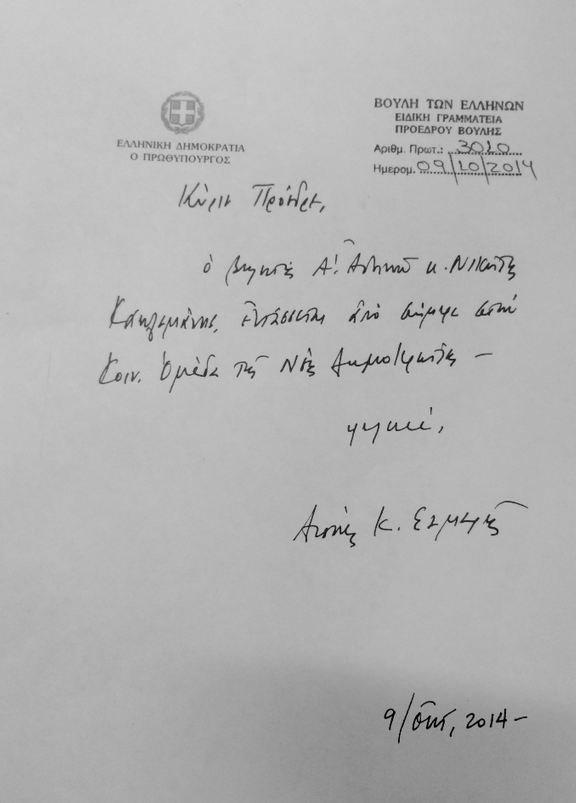 ΕΛΛΗΝΙΚΗ ΔΗΜΟΚΡΑΤΙΑ
Ο ΠΡΩΘΥΠΟΥΡΓΟΣ
ΒΟΥΛΗ ΤΩΝ ΕΛΛΗΝΩΝ
ΕΙΔΙΚΗ ΓΡΑΜΜΑΤΕΙΑ
ΠΡΟΕΔΡΟΥ ΒΟΥΛΗΣ
Αριθμ. Πρωτ.: 3010
Ημερομ. 09/10/2014
Κύριε Πρόεδρε,
ὁ βουλευτής Α! Ἀθηνῶν κ. Νικήτας
Κακλαμάνης, ἐντάσσεται ἀπό σήμερα στήν
Κοιν. Ὁμάδα τῆς Νέας Δημοκρατίας –
φιλικά,
Ἀντώνης Κ. Σαμαρᾶς
9/Ὀκτ, 2014 –